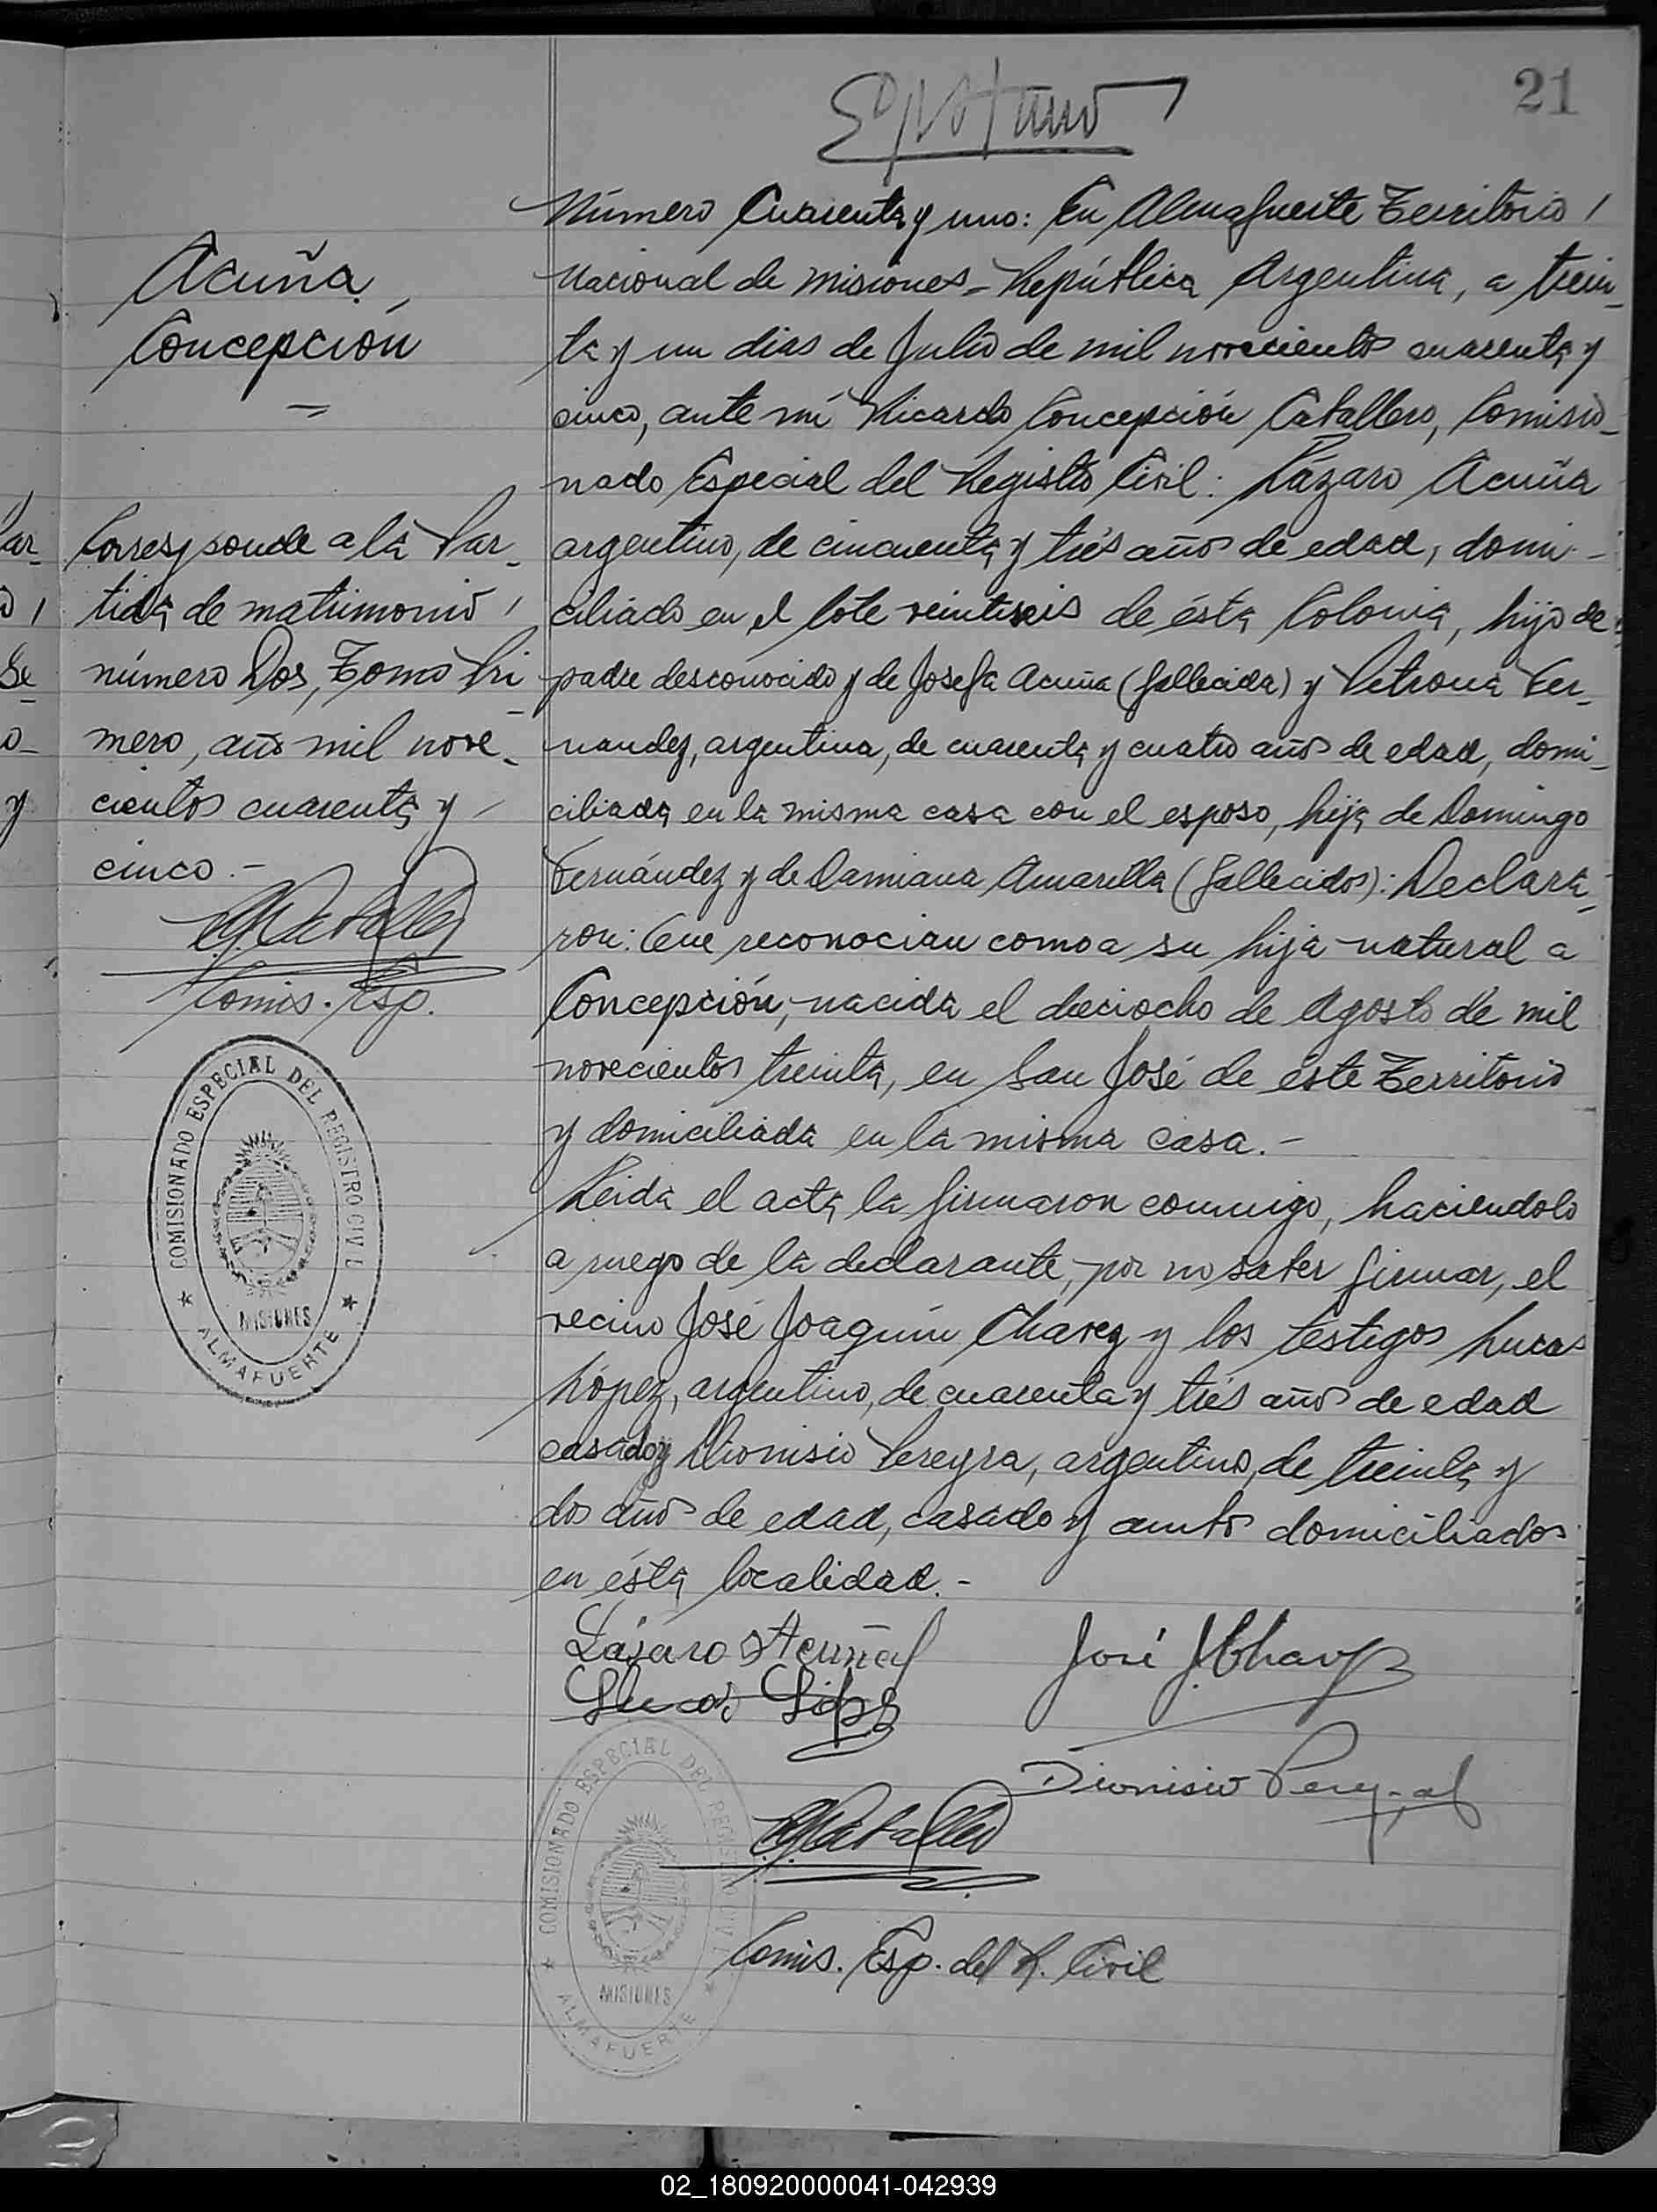 21
Acuña
Concepción
Corresponde a la Par_
tida de matrimonio
número Dos, Tomo Pri_
mero, año mil nove_
cientos cuarenta y
cinco.-
Comis. Esp.
COMISIONADO ESPECIAL DEL REGISTRO CIVIL
MISIONES
ALMAFUERTE
Número Cuarenta y uno: En Almafuerte Territorio
Nacional de Misiones - República Argentina, a trein_
ta y un dias de Julio de mil novecientos cuarenta y
cinco, ante mí Ricardo Concepción Caballero, Comisio_
nado Especial del Registro Civil: Lázaro Acuña
argentino, de cincuenta y trés años de edad, domi-
ciliado en el lote veintiseis de ésta Colonia, hijo de
padre desconocido y de Josefa Acuña (fallecida) y Petrona Fer_
nandez, argentina, de cuarenta y cuatro años de edad, domi_
ciliada en la misma casa con el esposo, hija de Domingo
Fernández y de Damiana Amarilla (fallecidos): Declara_
ron: Que reconocian como a su hija natural a
Concepción, nacida el dieciocho de Agosto de mil
novecientos treinta, en San José de éste Territorio
y domiciliada en la misma casa.-
Leida el acta la firmaron conmigo, haciendolo
a ruego de la declarante, por no saber firmar, el
vecino José Joaquín Chavez y los testigos Lucas
López, argentino, de cuarenta y trés años de edad
casado y Dionisio Pereyra, argentino, de treinta y
dos años de edad, casado y ambos domiciliados
en ésta localidad.-
Lázaro Acuña
José J. Chavez
Lucas López
Dionisio Pereyra
Comis. Esp. del R. Civil
COMISIONADO ESPECIAL DEL REGISTRO CIVIL
MISIONES
ALMAFUERTE
02_180920000041-042939